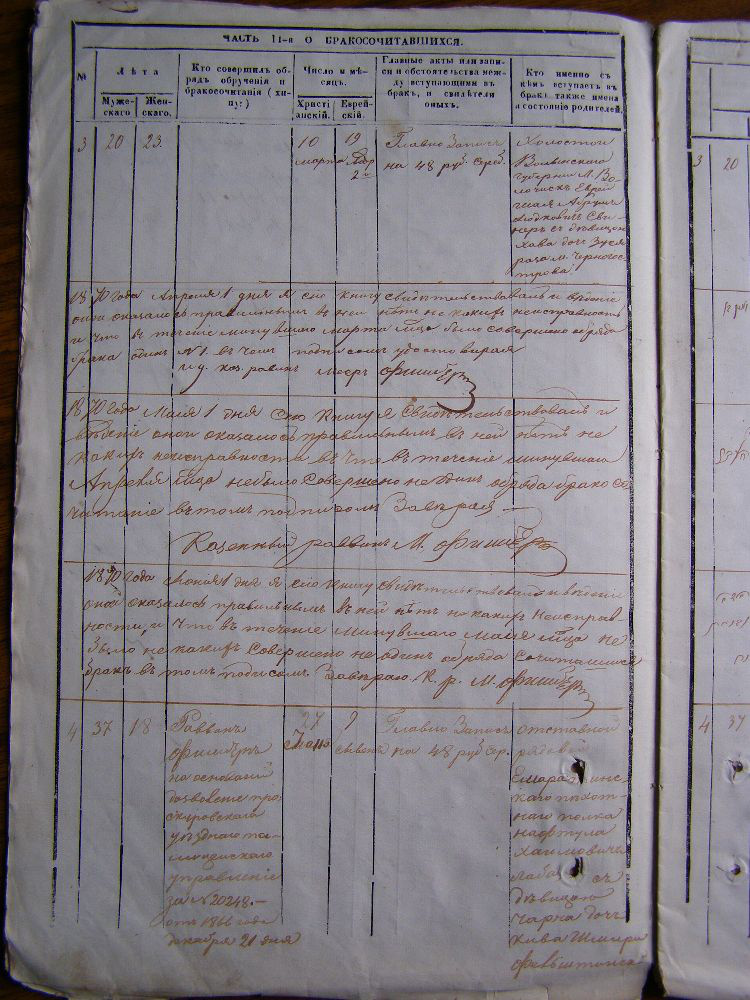 ЧАСТЬ II-я О БРАКОСОЧИТАВШИХСЯ.
№
Лѣта
Мужескаго
Женскаго.
Кто совершилъ обрядъ обрученія и бракосочтанія (хипу:)
Число и мѣсяцъ.
Христіанскій.
Еврейскій.
Главные акты или записи и обстоятельства между вступающими въ бракъ, и свидѣтели оныхъ.
Кто именно съ кѣмъ вступаетъ въ бракъ также имена и состояніе родителей.
3
20
23.
10
марта
19
Адар
2
Главно Запись
на 48 руб. сереб.
Холостой
Волынскаго
губерніи М. Во-
лочискъ Еврей
с дѣвицею
Хава доч Зуся
1870 года Апреля 1 дня я сію книгу свидѣтельствовалъ и веденіе
оной оказалось правильнымъ въ ней нѣтъ не какихъ неисправность
и что въ теченіе минувшаго марта м-ца было совершено обряда
брака одинъ №1. въ чемъ подписомъ удостоверяю
и д. каз. равинъ Меер Фишберг
1870 года Мая 1 дня сію книгу я свидѣтельствовалъ и
веденіе оной оказалось правильнымъ въ ней нѣтъ не
какихъ неисправности въ что въ теченіе минувшаго
Апреля м-ца небыло совершено не одинъ обряда бракосо
читаніе въ томъ подписомъ Заверяю
Казенный раввинъ М. Фишберг
1870 года Іюня 1 дня я сію книгу свидѣтельствовалъ и веденіе
оной оказалось правильнымъ въ ней нѣтъ не какихъ неисправ-
ности, и что въ теченіе минувшаго мая м-ца не
было не какихъ совершено не одинъ обряда
бракъ въ томъ подписомъ Заверяю К. р. М. Фишберг
4
37
18
Раввинъ
на основаній
дозволеніе про-
скуровскаго
уѣзднаго по-
лицейскаго
управленіе
за №20248.-
отъ 1866 года
декабря 21 дня
27
9
Главно Запись
на 48 руб. сер.
отставной
рядовой
скаго пѣхот-
наго полка
Нафтула
Хаимовичъ
съ
дѣвицею
Чарна доч
3
20
4
37